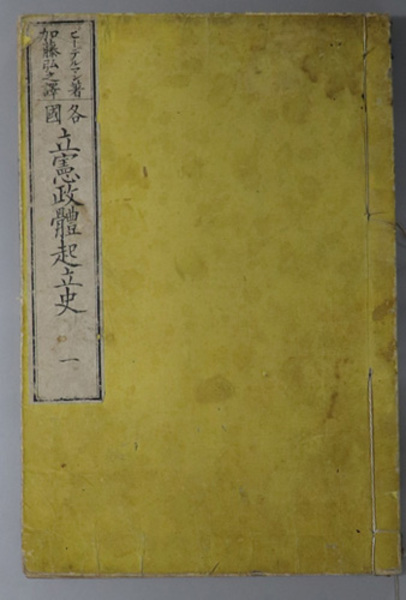 ビーデルマン著
加藤弘之譯
各國
立憲政體起立史
一